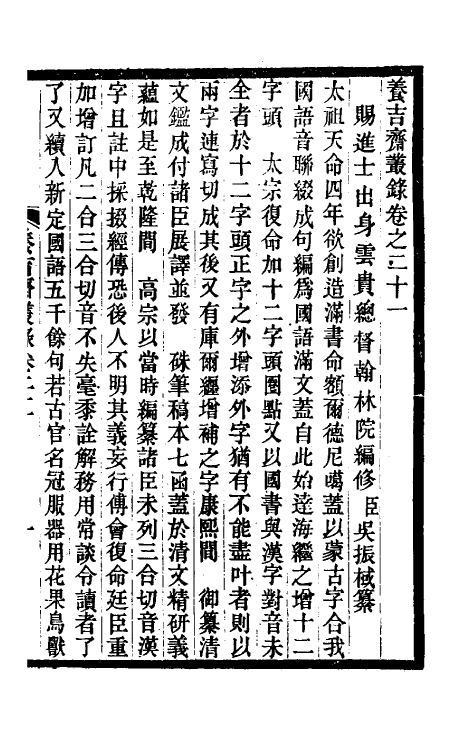 養吉齋叢錄卷之二十一
賜進士出身雲貴總督翰林院編修臣吳振棫纂
太祖天命四年欲創造滿書命額爾德尼噶蓋以蒙古字合我
國語音聯綴成句編爲國語滿文蓋自此始逹海繼之增十二
字頭　太宗復命加十二字頭圈點又以國書與漢字對音未
全者於十二字頭正字之外增添外字猶有不能盡叶者則以
兩字連寫切成其後又有庫爾纏增補之字康熙間　御纂清
文鑑成付諸臣展譯並發　硃筆稿本七函蓋於清文精研義
蘊如是至乾隆間　高宗以當時編纂諸臣未列三合切音漢
字且註中採掇經傳恐後人不明其義妄行傅會復命廷臣重
加增訂凡二合三合切音不失毫黍詮解務用常談令讀者了
了又續入新定國語五千餘句若古官名冠服器用花果鳥獸
養吉齋叢錄卷二十一
一